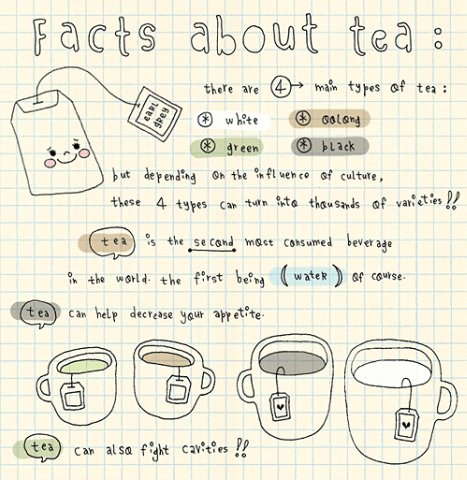 Facts about tea:
earl grey
there are 4 → main types of tea:
* white * oolong
* green * black
but depending on the influence of culture,
these 4 types can turn into thousands of varieties!!
tea is the second most consumed beverage
in the world. the first being (water) of course.
tea can help decrease your appetite.
tea can also fight cavities!!